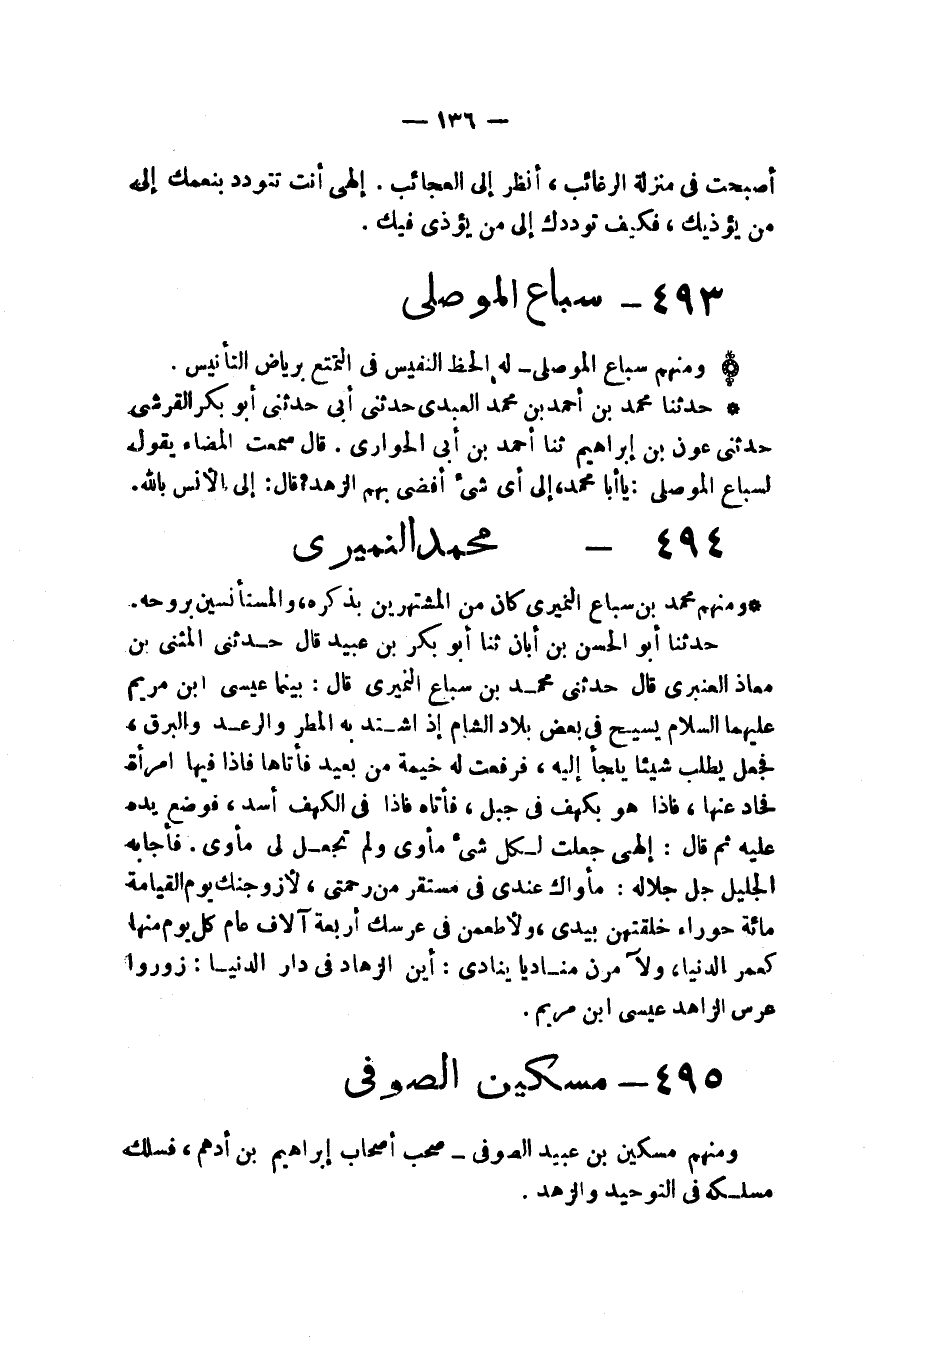 — ١٣٦ —
أصبحت فى منزلة الرغائب ، أنظر إلى العجائب . إلهى أنت تتودد بنعمك إلى
من يؤذيك ، فكيف توددك إلى من يؤذى فيك .
٤٩٣ – سباع الموصلى
ومنهم سباع الموصلى – له الحظ النفيس فى التمتع برياض التأنيس .
* حدثنا محمد بن أحمد بن محمد العبدى حدثنى أبى حدثنى أبو بكر القرشى
حدثنى عون بن إبراهيم ثنا أحمد بن أبى الحوارى . قال سمعت المضاء يقول
لسباع الموصلى : يا أبا محمد، إلى أى شىء أفضى بهم الزهد؟ قال: إلى الأنس بالله.
٤٩٤ – محمد النميرى
* ومنهم محمد بن سباع النميرى كان من المشتهرين بذكره، والمستأنسين بروحه.
حدثنا أبو الحسن بن أبان ثنا أبو بكر بن عبيد قال حدثنى المثنى بن
معاذ العنبرى قال حدثنى محمد بن سباع النميرى قال : بينما عيسى ابن مريم
عليهما السلام يسيح فى بعض بلاد الشام إذ اشتد به المطر والرعد والبرق ،
فجعل يطلب شيئا يلجأ إليه ، فرفعت له خيمة من بعيد فأتاها فاذا فيها امرأة
فحاد عنها ، فاذا هو بكهف فى جبل ، فأتاه فاذا فى الكهف أسد ، فوضع يده
عليه ثم قال : إلهى جعلت لكل شىء مأوى ولم تجعل لى مأوى . فأجابه
الجليل جل جلاله : مأواك عندى فى مستقر من رحمتى ، لأزوجنك يوم القيامة
مائة حوراء خلقتهن بيدى ، ولأطعمن فى عرسك أربعة آلاف عام كل يوم منها
كعمر الدنيا، ولآمرن مناديا ينادى : أين الزهاد فى دار الدنيا : زوروا
عرس الزاهد عيسى ابن مريم .
٤٩٥ – مسكين الصوفى
ومنهم مسكين بن عبيد الصوفى – صحب أصحاب إبراهيم بن أدهم ، فسلك
مسلكه فى التوحيد والزهد .